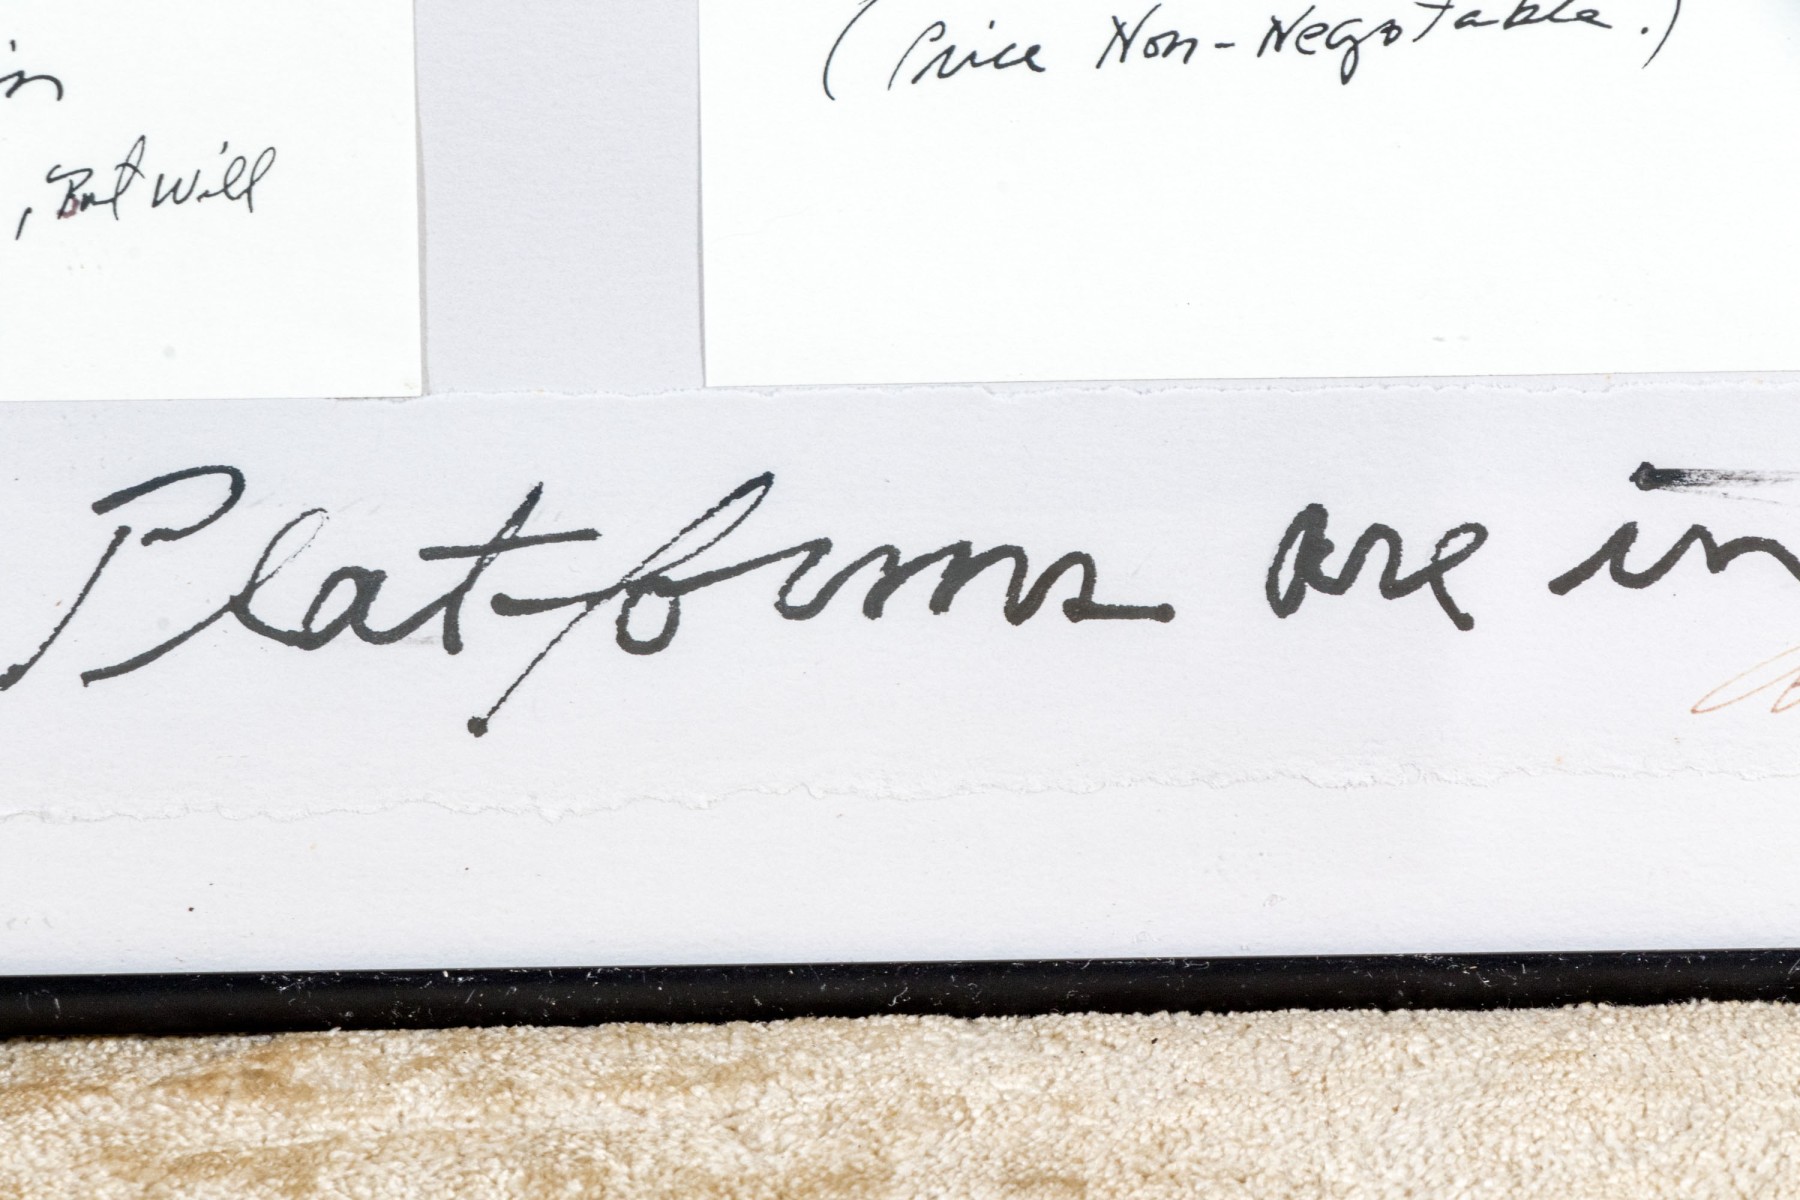 (Price Non-Negotable.)
in
, But Will
Platforms are in